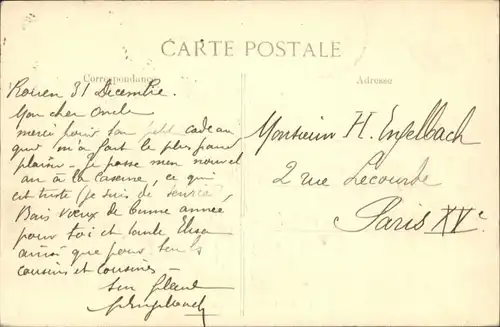 CARTE POSTALE
Correspondance
Adresse
Rouen 31 Decembre.
Mon cher Oncle
merci pour ton petit cadeau
qui m'a fait le plus grand
plaisir - Je passe mon nouvel
an à la caserne, ce qui
est triste (je suis de service),
Bons vœux de bonne année
pour toi et tante Elisa
ainsi que pour tous les
cousins et cousines
ton
Monsieur H. Engelbach
2 rue Lecourbe
Paris XVe